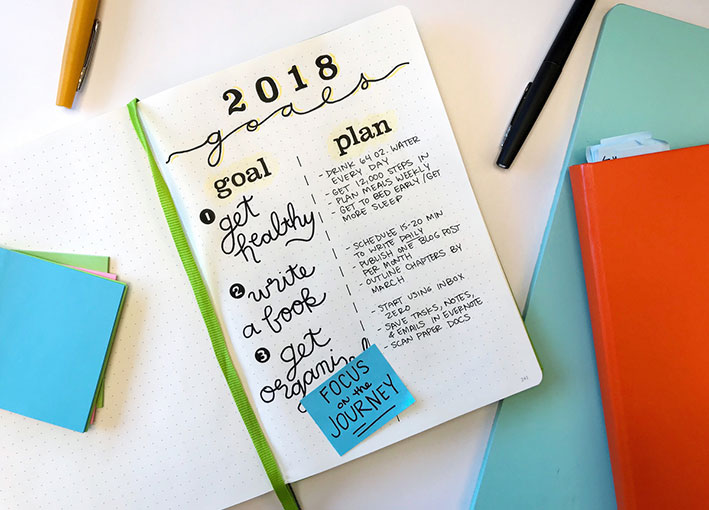 2018
goals
goal
plan
1 get
healthy
- DRINK 64 OZ. WATER
EVERY DAY
- GET 12,000 STEPS IN
- PLAN MEALS WEEKLY
- GET TO BED EARLY/GET
MORE SLEEP
2 write
a book
- SCHEDULE 15-20 MIN
TO WRITE DAILY
- PUBLISH ONE BLOG POST
PER MONTH
- OUTLINE CHAPTERS BY
MARCH
3 get
organized
- START USING INBOX
ZERO
- SAVE TASKS, NOTES,
& EMAILS IN EVERNOTE
- SCAN PAPER DOCS
FOCUS
on the
JOURNEY